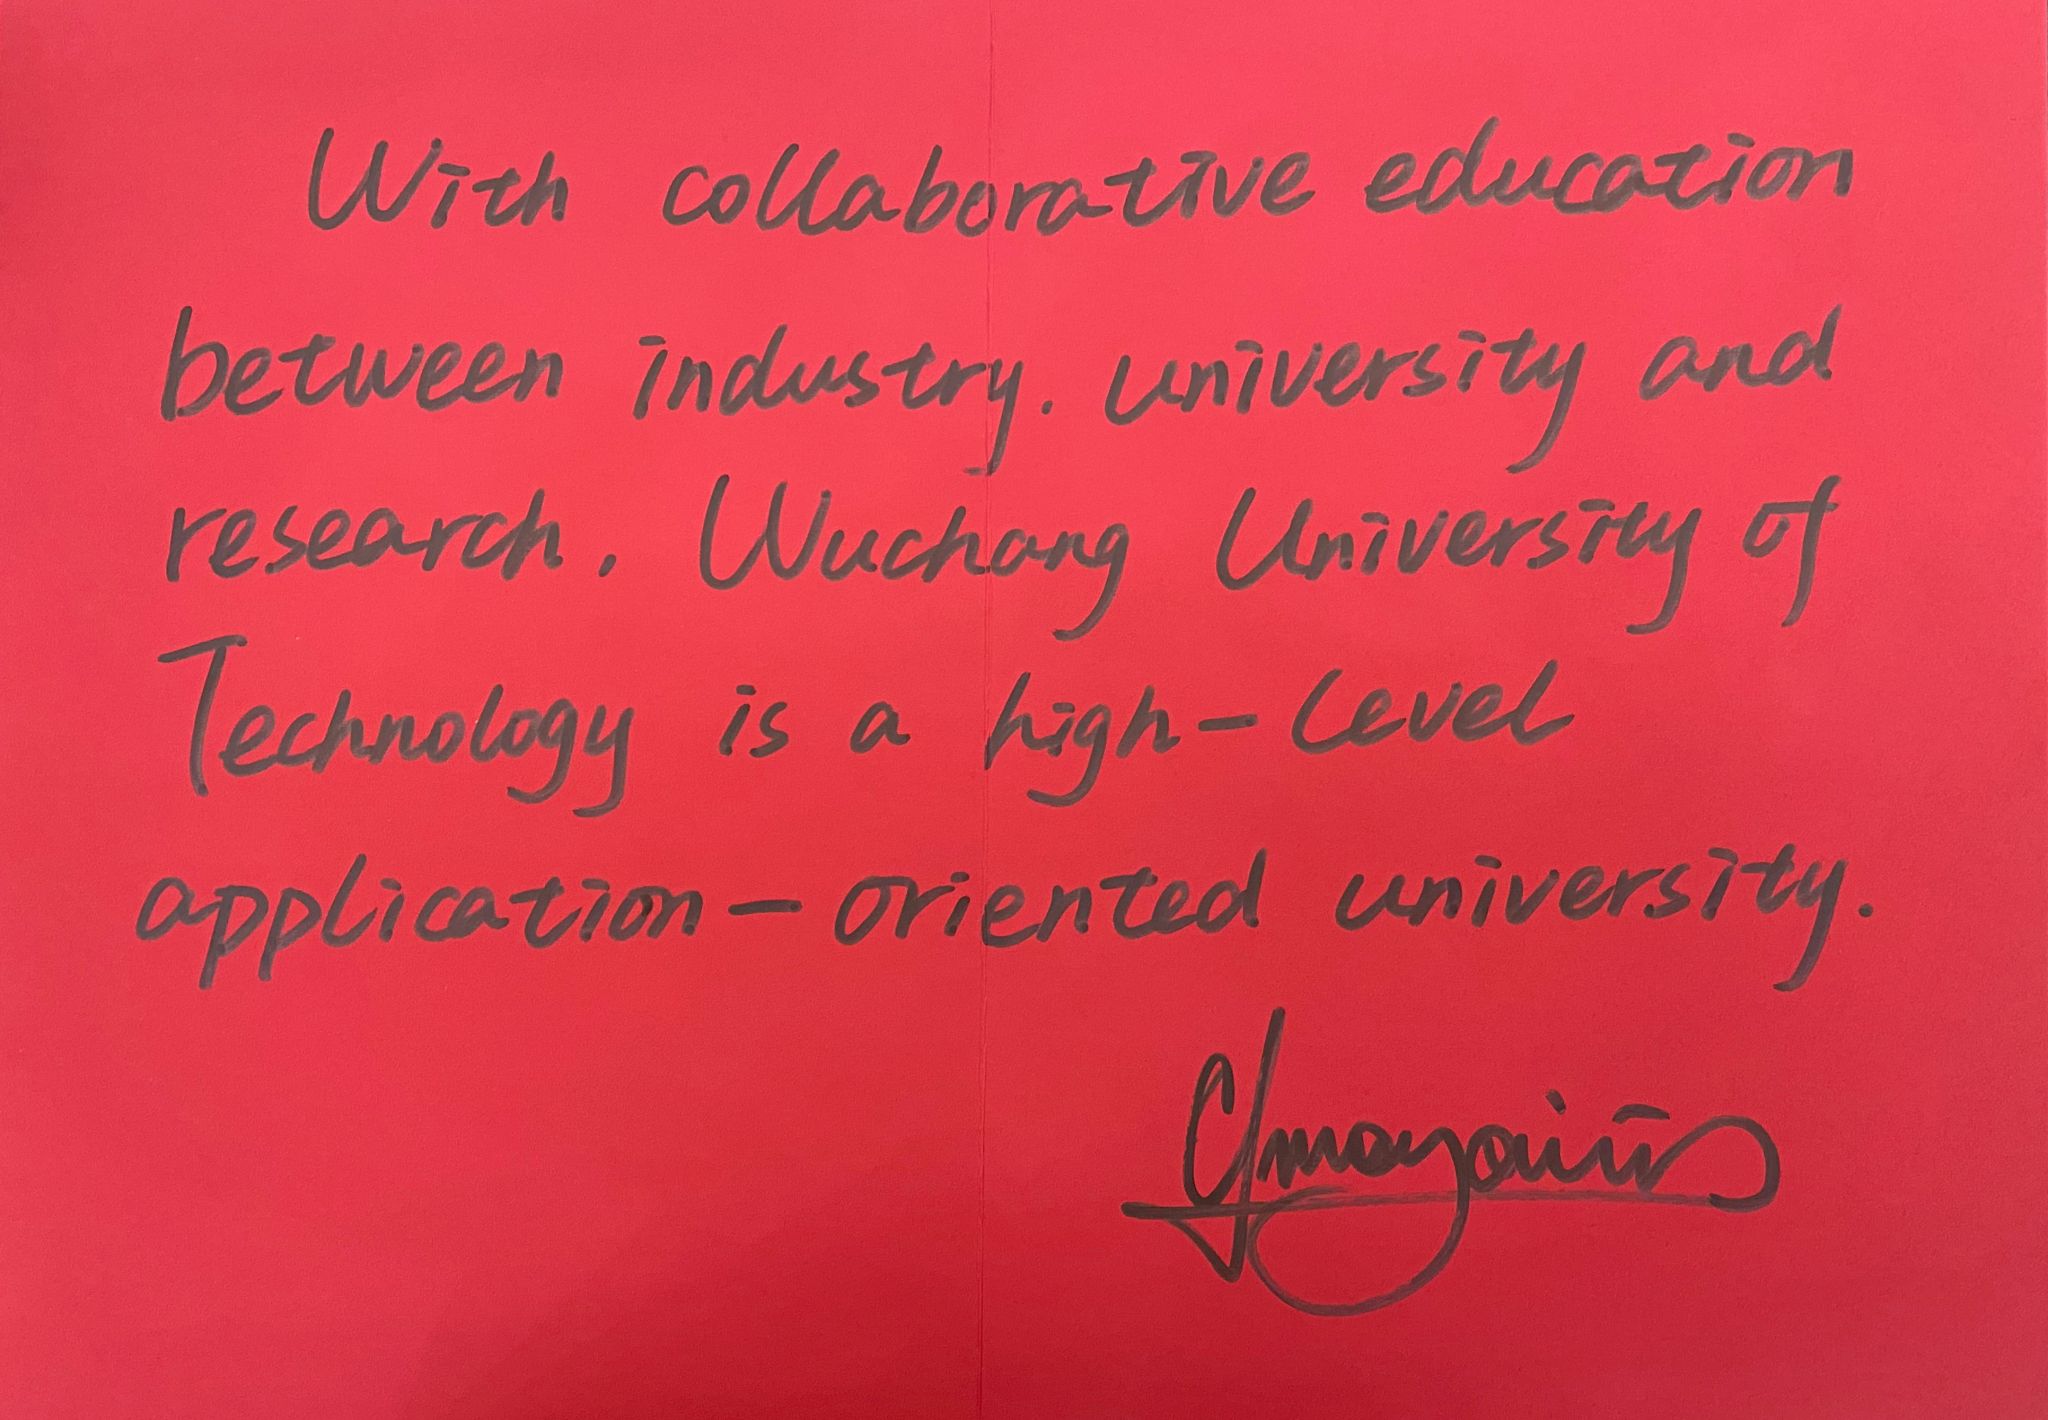 With collaborative education
between industry. university and
research. Wuchang University of
Technology is a high-level
application-oriented university.